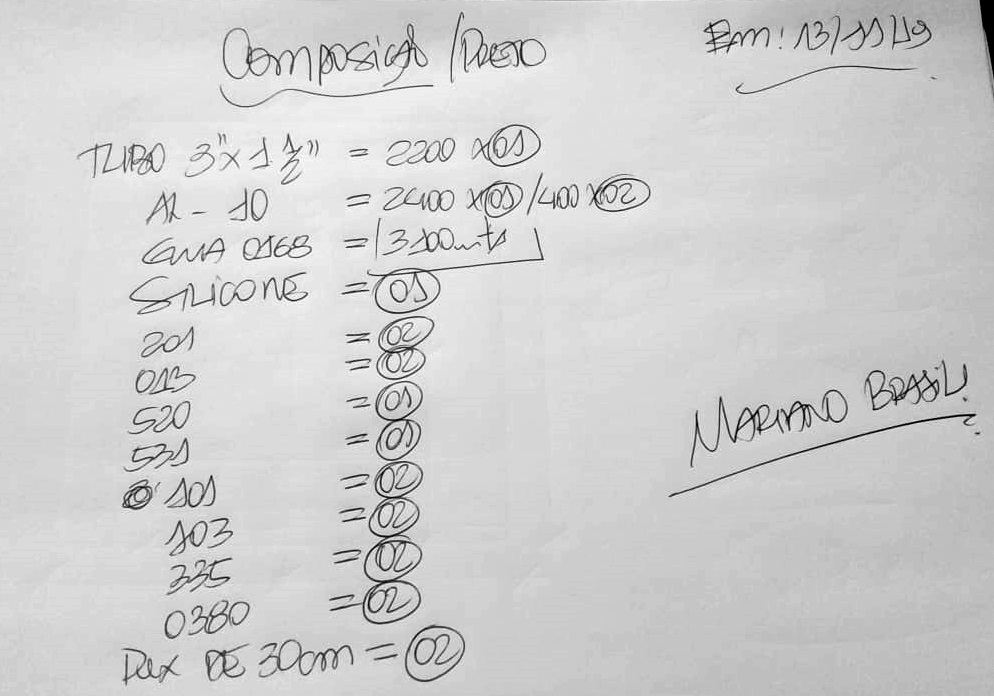 Composição / PRETO
Em: 13/11/19
TUBO 3" x 1 1/2" = 2200 x 01
AL - 10 = 2400 x 01 / 400 x 02
GUIA 0168 = 3100 mts
SILICONE = 01
201 = 02
013 = 02
520 = 01
531 = 01
101 = 02
103 = 02
335 = 02
0380 = 02
DE 30cm = 02
MARIANO BRASIL